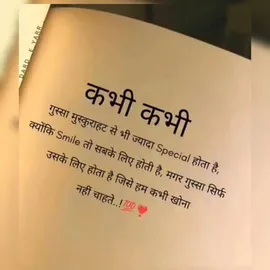 DARD_E_YARR
कभी कभी
गुस्सा मुस्कुराहट से भी ज्यादा Special होता है,
क्योंकि Smile तो सबके लिए होती है, मगर गुस्सा सिर्फ
उसके लिए होता है जिसे हम कभी खोना
नहीं चाहते..!💯❤️